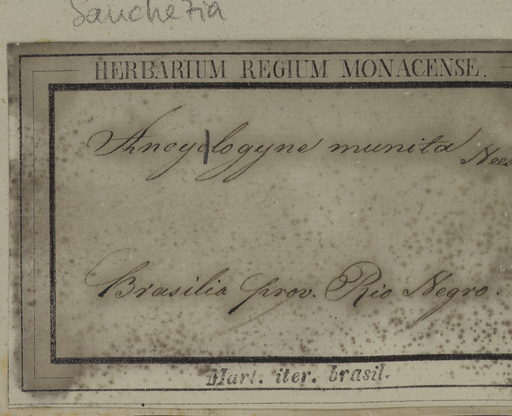 Sanchezia
HERBARIUM REGIUM MONACENSE.
Ancylogyne munita Nees
Brasilia prov. Rio Negro.
Mart. iter. brasil.